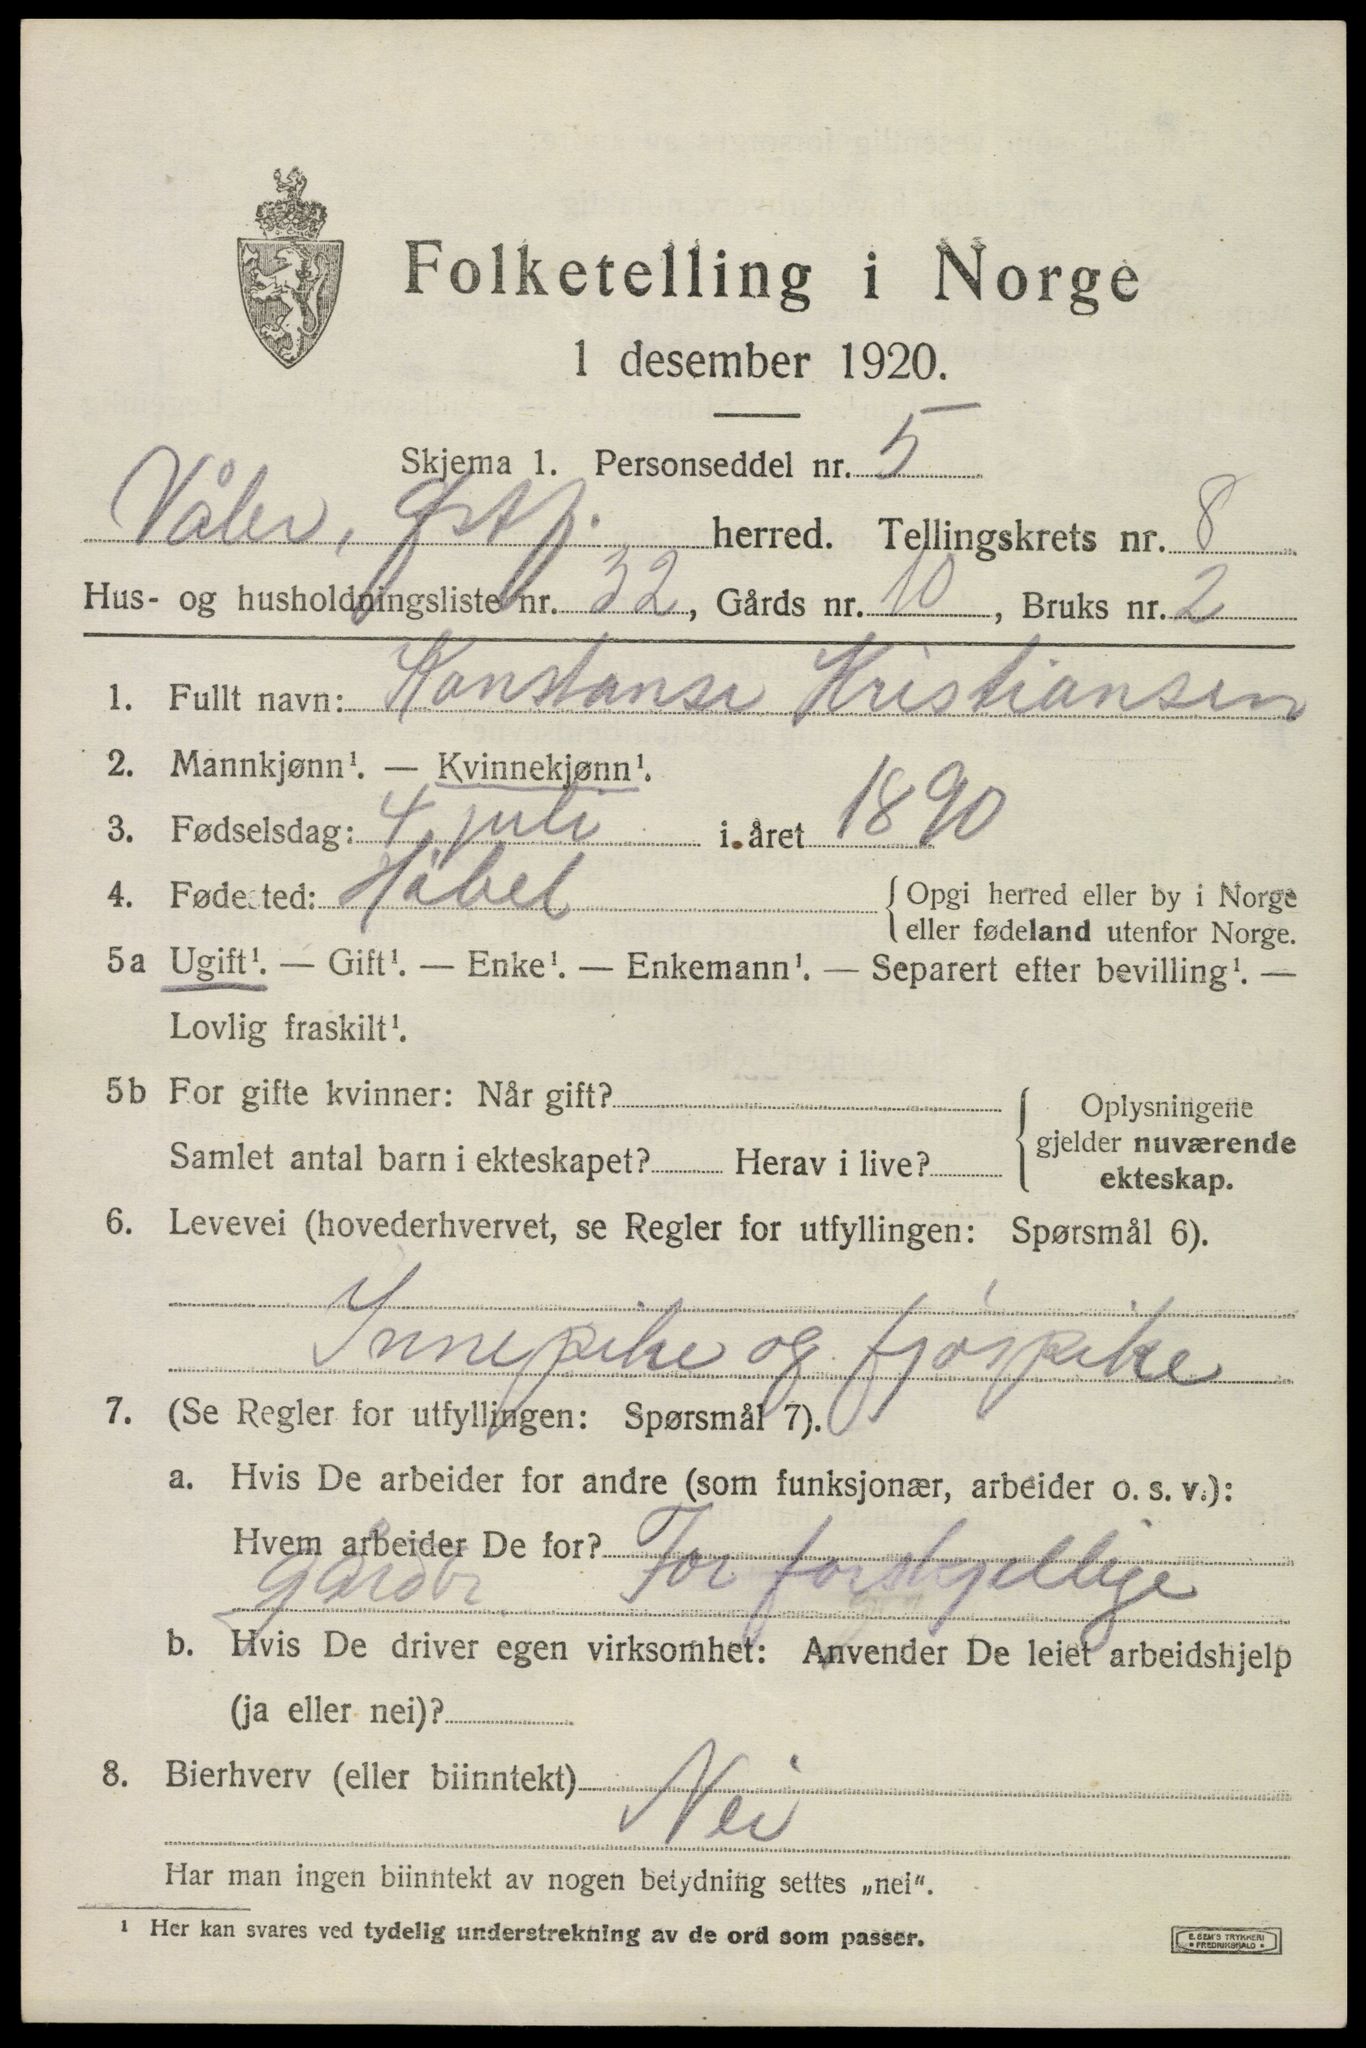 Folketelling i Norge
1 desember 1920.
Skjema 1. Personseddel nr. 5
Våler, Østf. herred. Tellingskrets nr. 8
Hus- og husholdningsliste nr. 32, Gårds nr. 10, Bruks nr. 2
1. Fullt navn: Konstanse Kristiansen
2. Mannkjønn¹. — Kvinnekjønn¹.
3. Fødselsdag: 4 juli i året 1890
4. Fødested: Håbel {Opgi herred eller by i Norge
eller fødeland utenfor Norge.
5a Ugift¹. — Gift¹. — Enke¹. — Enkemann¹. — Separert efter bevilling¹. —
Lovlig fraskilt¹.
5b For gifte kvinner: Når gift?
Samlet antal barn i ekteskapet? Herav i live?
{Oplysningene
gjelder nuværende
ekteskap.
6. Levevei (hovederhvervet, se Regler for utfyllingen: Spørsmål 6).
Innepike og fjøspike
7. (Se Regler for utfyllingen: Spørsmål 7).
a. Hvis De arbeider for andre (som funksjonær, arbeider o. s. v.):
Hvem arbeider De for? For forskjellige
gårdbr.
b. Hvis De driver egen virksomhet: Anvender De leiet arbeidshjelp
(ja eller nei)?
8. Bierhverv (eller biinntekt) Nei
Har man ingen biinntekt av nogen betydning settes „nei".
¹ Her kan svares ved tydelig understrekning av de ord som passer.
E. SEM'S TRYKKERI
FREDRIKSHALD